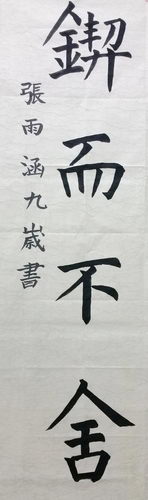 鍥而不舍
張雨涵九歲書